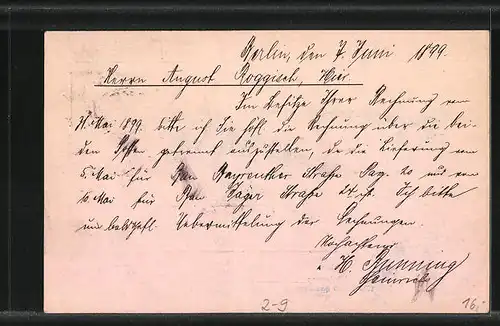 Berlin, den 7. Juni 1899.
Herrn August Roggisch, Hier.
Im Besitze Ihrer Rechnung vom
31. Mai 1899. bitte ich Sie höfl. die Rechnung über die bei-
den Posten getrennt auszustellen, da die Lieferung vom
5. Mai für Bau Bayreuther Straße 20 und vom
10 Mai für Bau Jäger Straße 24 ist. Ich bitte
um baldgefl. Uebermittelung der Rechnungen.
Hochachtend
H. Bünning
2-9
16,-